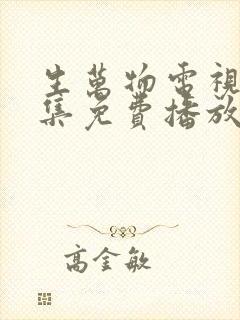 生萬物電視
集免費播放
高金敏